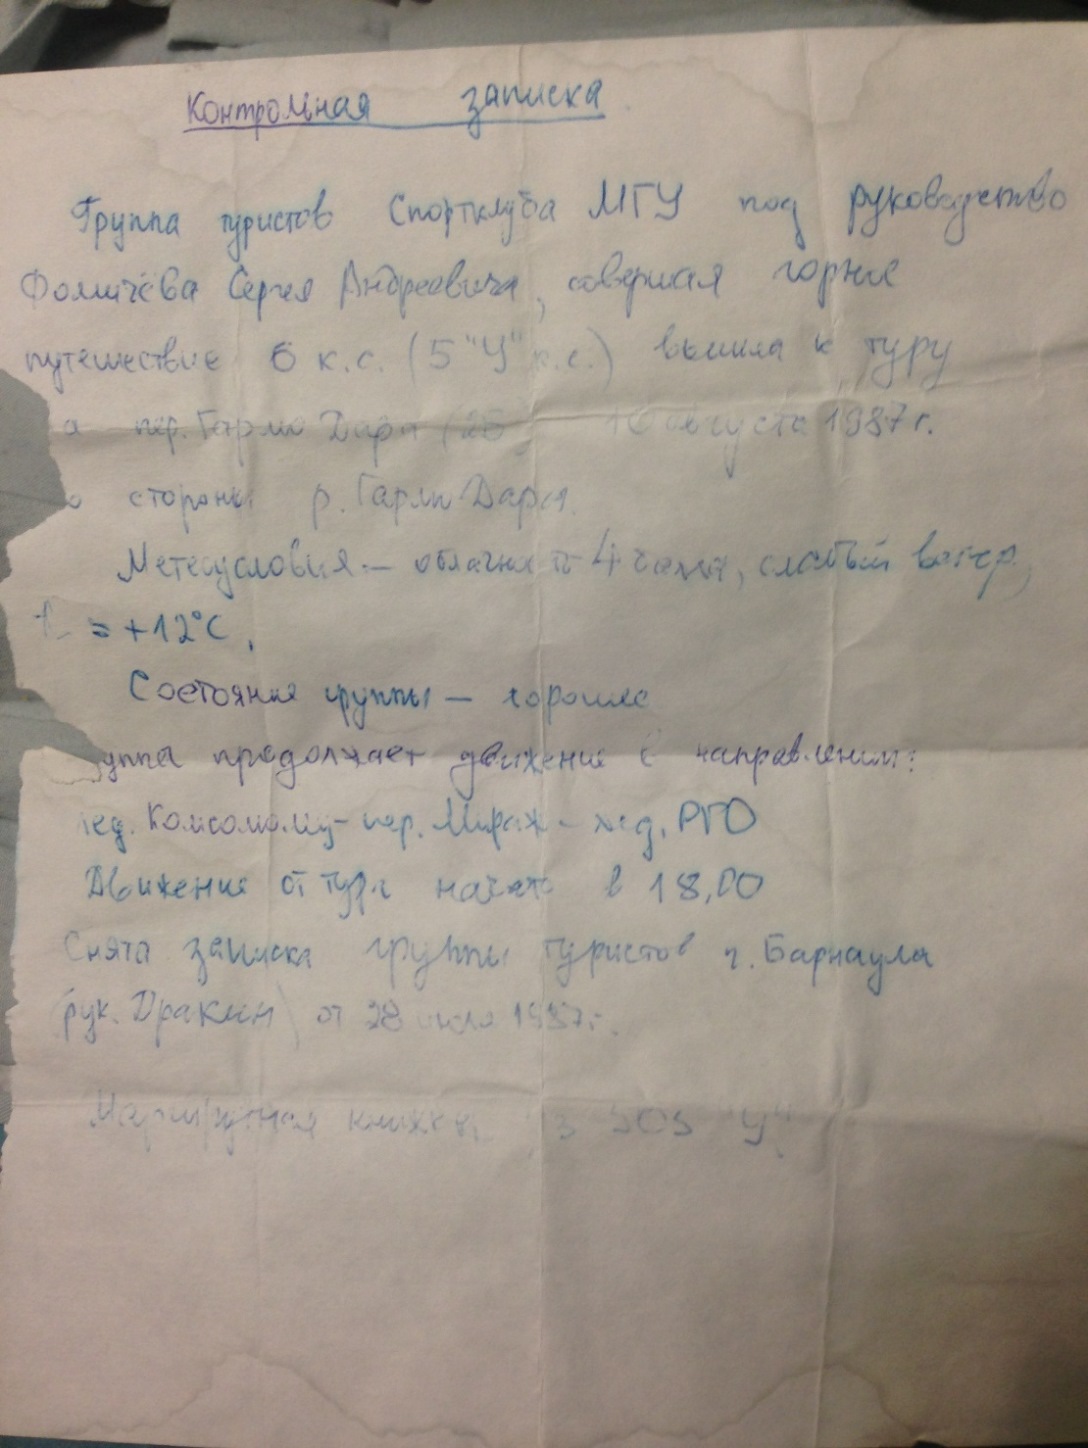 Контрольная записка.
Группа туристов Спортклуба МГУ под руководство
Фомичёва Сергея Андреевича, совершая горное
путешествие 6 к.с. (5 "У" к.с.) вышла к туру
а пер. Гармо Дара (2Б 10 августа 1987 г.
о стороны р. Гармо Дара.
Метеоусловия — слабый ветер,
t = +12°C.
Состояние группы — хорошее
уппа продолжает движение в направлении:
лед. Комсомолец - пер. Мираж - лед. РГО
Движение от тура начато в 18.00
Снята записка группы туристов г. Барнаула
(рук. Дракин) от 28 июля 1987 г.
Маршрутная книжка 505 "У"